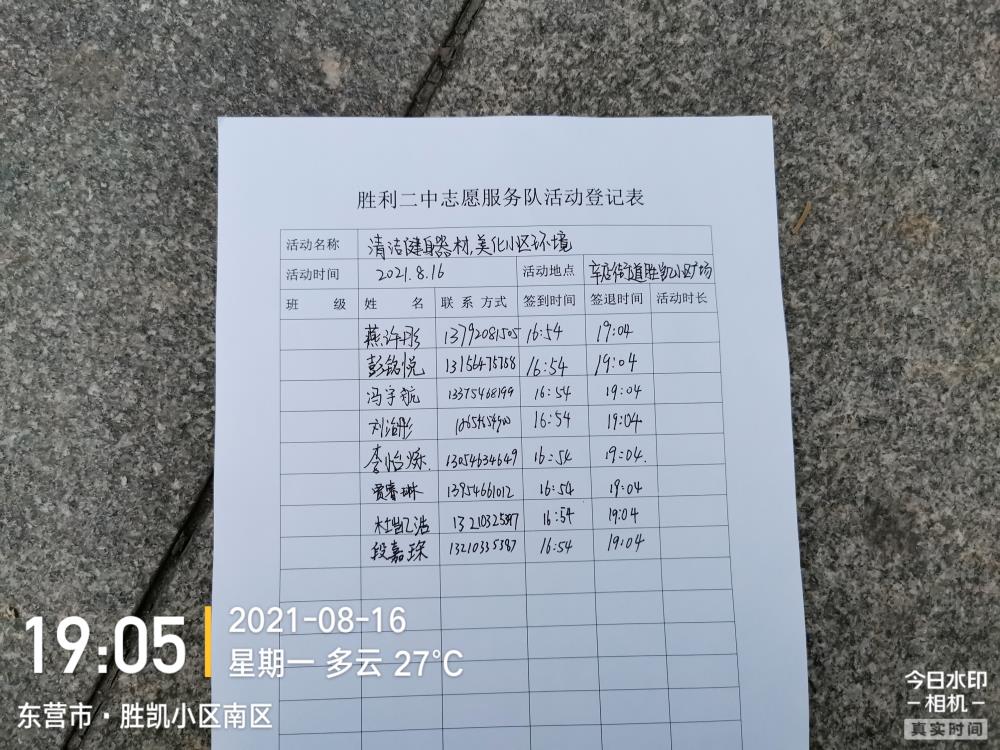 胜利二中志愿服务队活动登记表
活动名称 清洁健身器材,美化小区环境
活动时间 2021.8.16 活动地点 辛店街道胜凯小区广场
班 级 姓 名 联 系 方式 签到时间 签退时间 活动时长
燕许彤 13792081505 16:54 19:04
彭铭悦 13156475758 16:54 19:04
冯宇航 13375468199 16:54 19:04
刘 彤 16:54 19:04
李怡烁 13054634649 16:54 19:04
贾睿琳 13954661012 16:54 19:04
杜凯浩 16:54 19:04
段嘉琛 13210335387 16:54 19:04
19:05
2021-08-16
星期一 多云 27℃
东营市·胜凯小区南区
今日水印
-相机-
真实时间